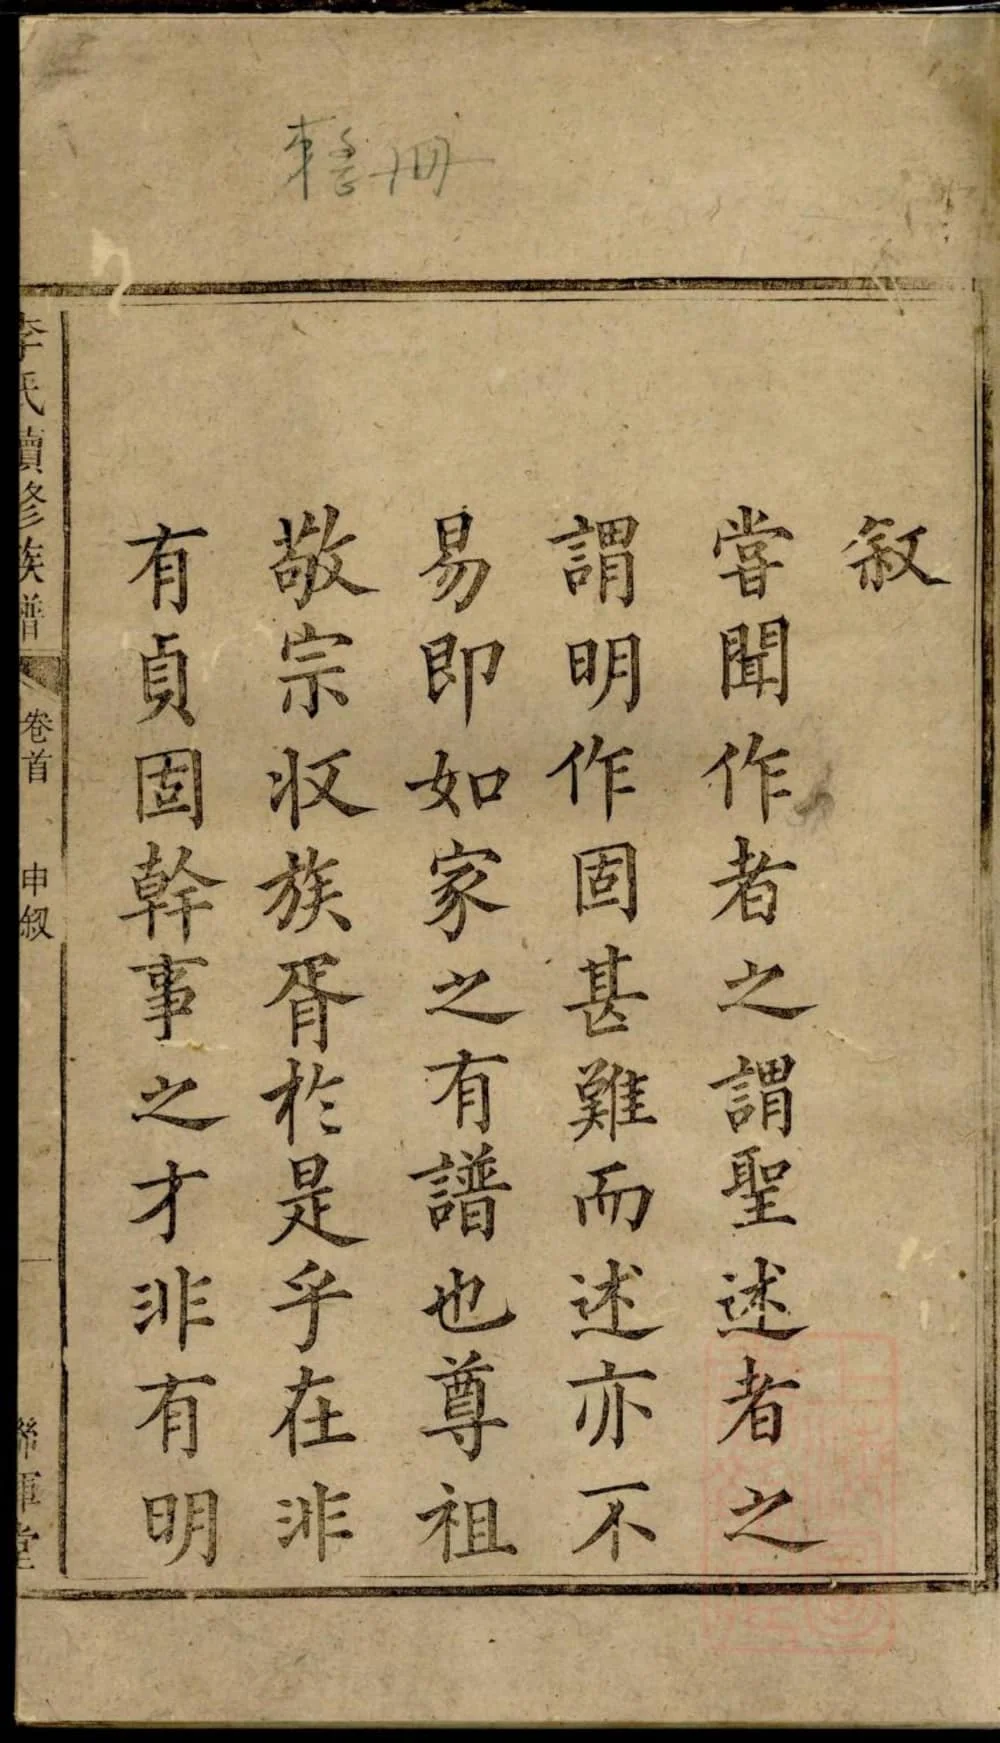 敘
嘗聞作者之謂聖述者之
謂明作固甚難而述亦不
易即如家之有譜也尊祖
敬宗收族胥於是乎在非
有貞固幹事之才非有明
李氏續修族譜
卷首
申叙
一
聯輝堂